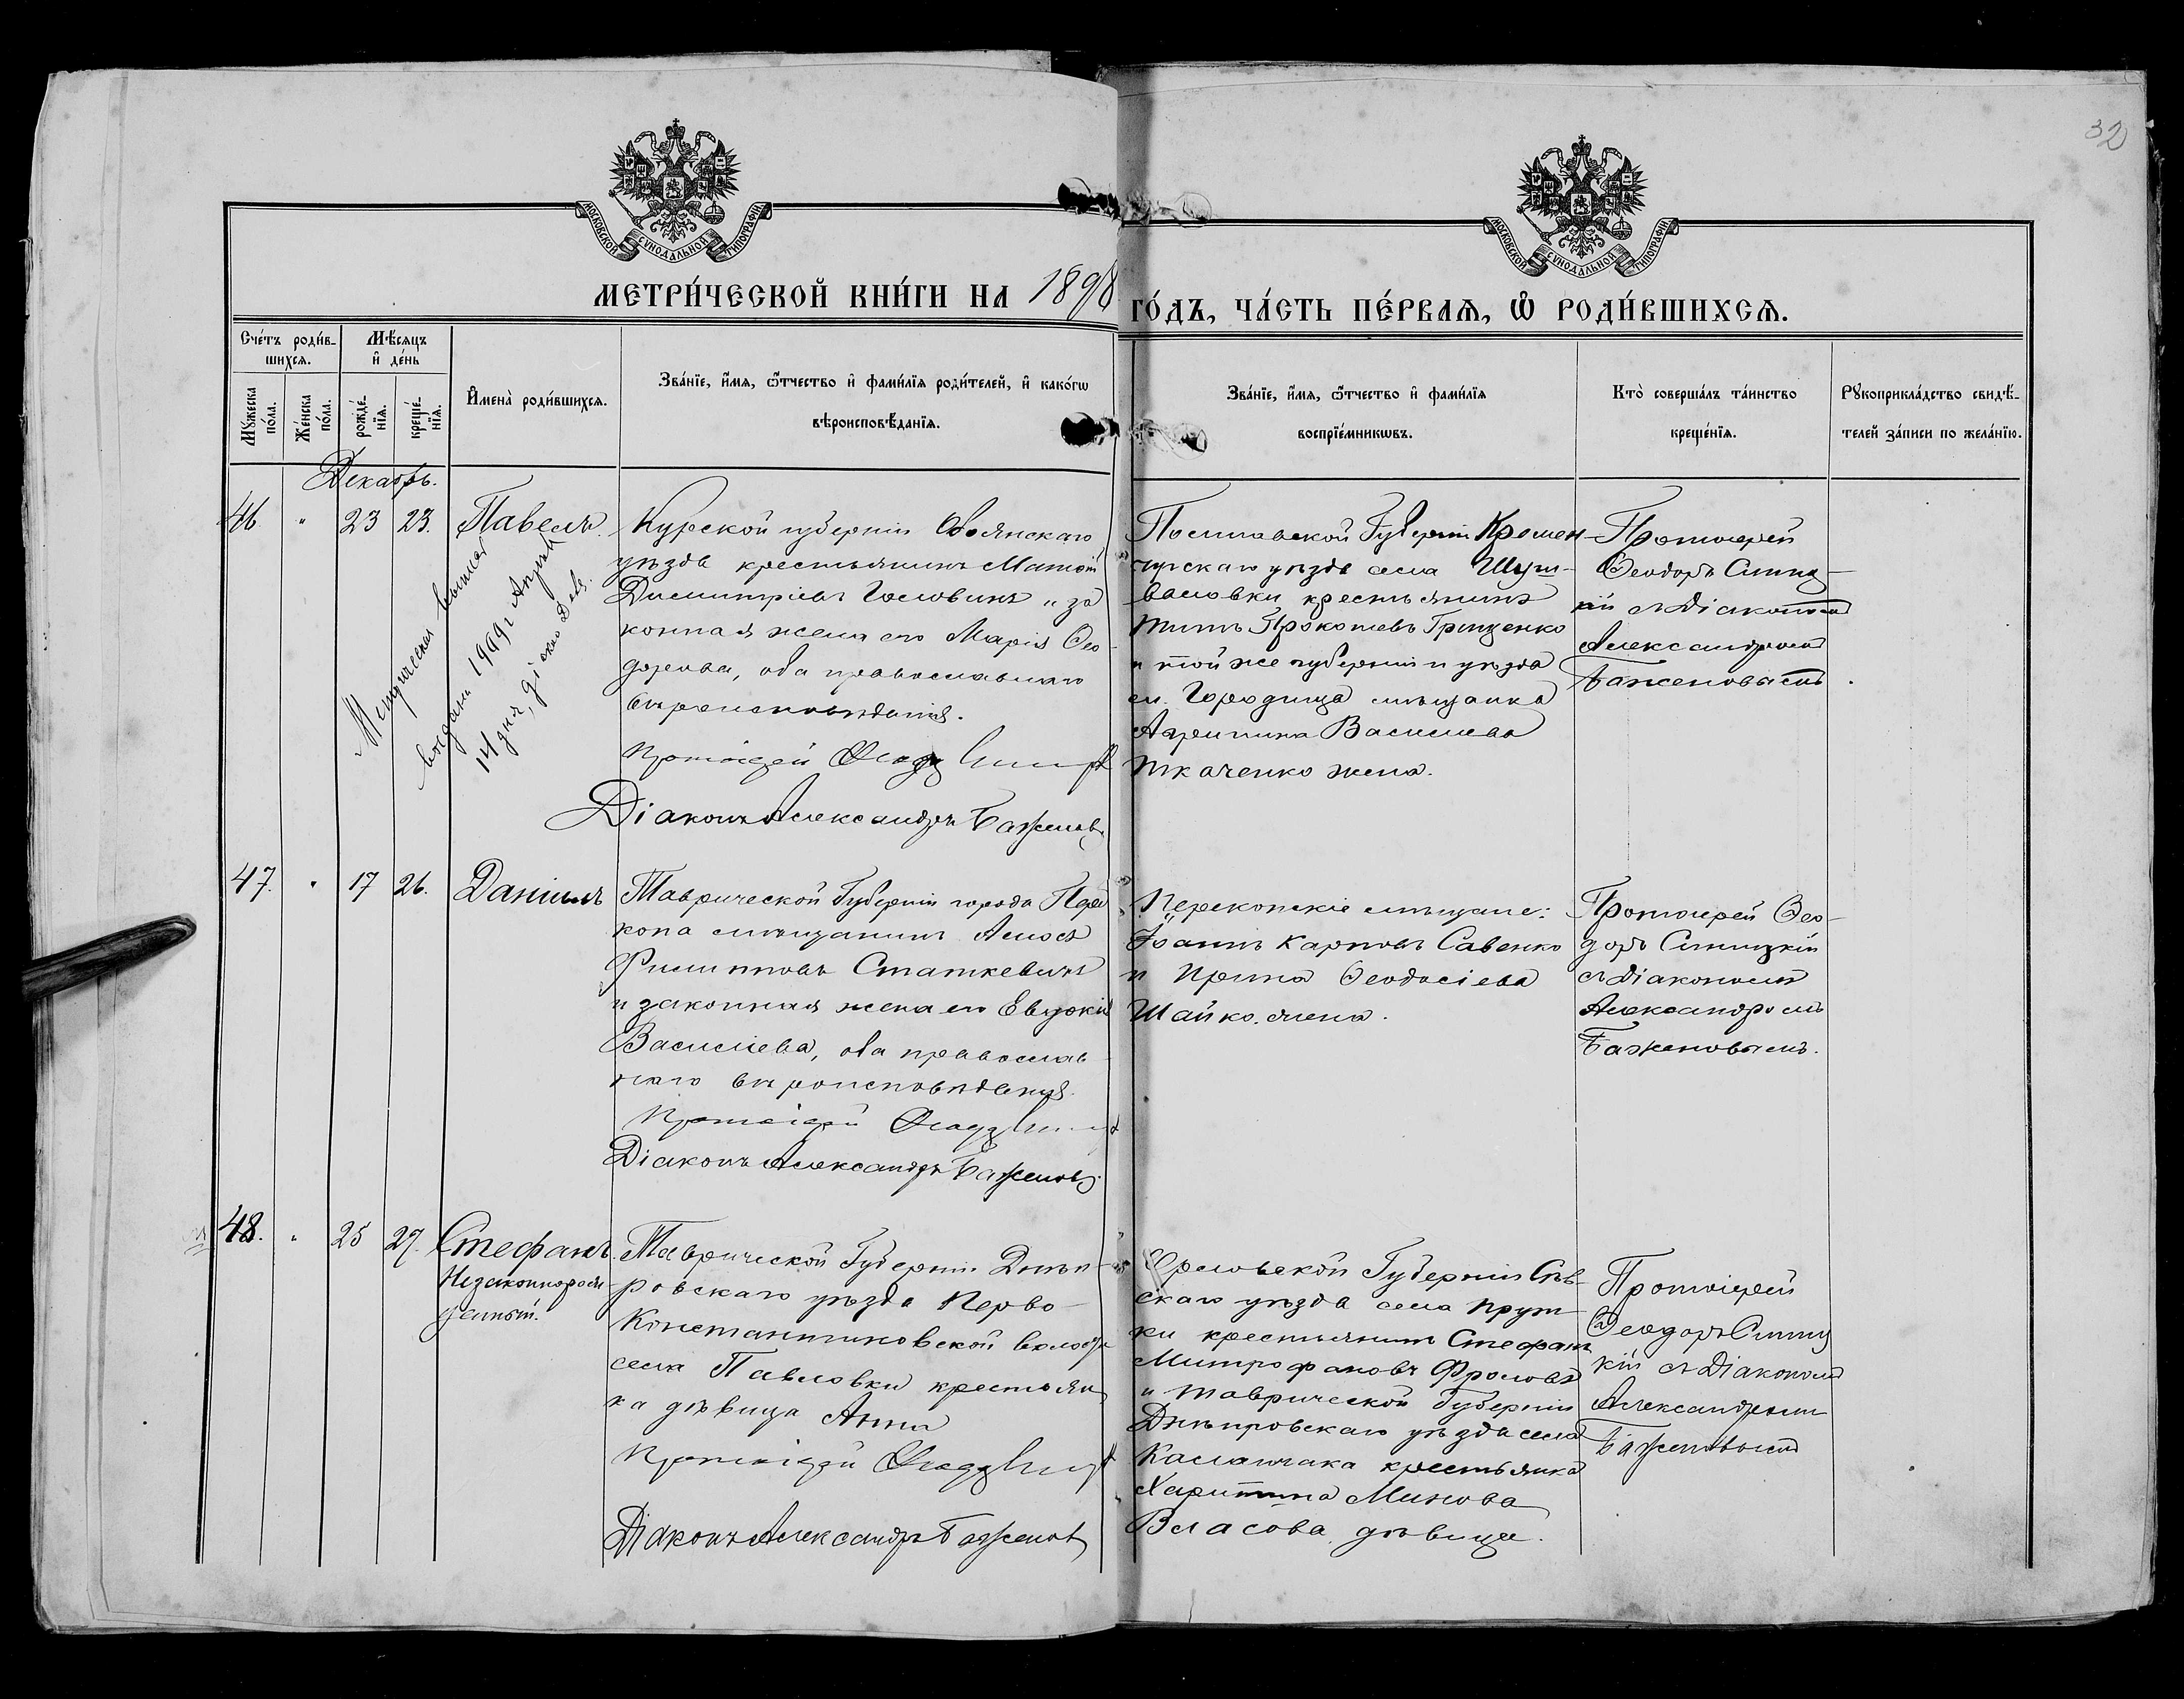 32
МОСКОВСКОЙ СѴНОДАЛЬНОЙ ТИПОГРАФІИ
МОСКОВСКОЙ СѴНОДАЛЬНОЙ ТИПОГРАФІИ
МЕТРИ́ЧЕСКОЙ КНИ́ГИ НА 1898 ГО́ДЪ, ЧА́СТЬ ПЕ́РВАѦ, Ѽ РОДИ́ВШИХСѦ.
Сче́тъ роди́в-
шихсѧ.
Мѣ́сѧцъ
и҆ де́нь
Мꙋ́жеска по́ла.
Же́нска по́ла.
рожде́-
нїѧ.
креще́-
нїѧ.
И҆мена̀ роди́вшихсѧ.
Зва́нїе, и҆́мѧ, ѻ҆́тчество и҆ фами́лїѧ роди́телей, и҆ како́гѡ
вѣроисповѣ́данїѧ.
Зва́нїе, и҆́мѧ, ѻ҆́тчество и҆ фами́лїѧ
воспрїе́мникѡвъ.
Кто̀ соверша́лъ та́инство
креще́нїѧ.
Рꙋкоприкла́дство свидѣ́-
телей за́писи по жела́нїю.
Декабрь.
46 " 23 23. Павелъ.
Курской губерніи Обоянскаго
уѣзда крестьянинъ
Димитріевъ Головинъ " за
конная жена его Марія Ѳео-
дорова, оба православнаго
вѣроисповѣданія.
Протоіерей Ѳеодоръ
Діаконъ Александръ Баженовъ
Метрическая выпись
выдана Апрѣля
14 дня,
Полтавской Губерніи Кремен-
чугскаго уѣзда села
крестьянинъ
Титъ Прокопіевъ Гриценко
и той же губерніи и уѣзда
с. Городища мѣщанка
Агрипина Василіева
Ткаченко жена.
Протоіерей
Ѳеодоръ Синиц-
кій съ Діакономъ
Александромъ
Баженовымъ.
47. " 17 26. Даніилъ
Таврической Губерніи города Пере
копа мѣщанинъ
Филипповъ Статкевичъ
и законная жена его Евдокія
Василіева, оба православ-
наго вѣроисповѣданія.
Протоіерей Ѳеодоръ
Діаконъ Александръ Баженовъ
Перекопскіе мѣщане:
Іоаннъ Карповъ Савенко
и Ирина Ѳеодосіева
Шайко, жена.
Протоіерей Ѳео-
доръ Синицкій
съ Діакономъ
Александромъ
Баженовымъ.
48. " 25 27. Стефанъ.
Незаконнорож-
денный.
Таврической Губерніи Днѣп-
ровскаго уѣзда Перво-
Константиновской волости
села Павловки крестьян
ка дѣвица Анна
Протоіерей Ѳеодоръ
Діаконъ Александръ Баженовъ
Орловской Губерніи Сѣв-
скаго уѣзда села Пруж-
ки крестьянинъ Стефанъ
Митрофановъ Фроловъ
и Таврической Губерніи
Днѣпровскаго уѣзда села
Каланчака крестьянка
Харитина Минова
Власова, дѣвица.
Протоіерей
Ѳеодоръ Синиц
кій съ Діакономъ
Александромъ
Баженовымъ